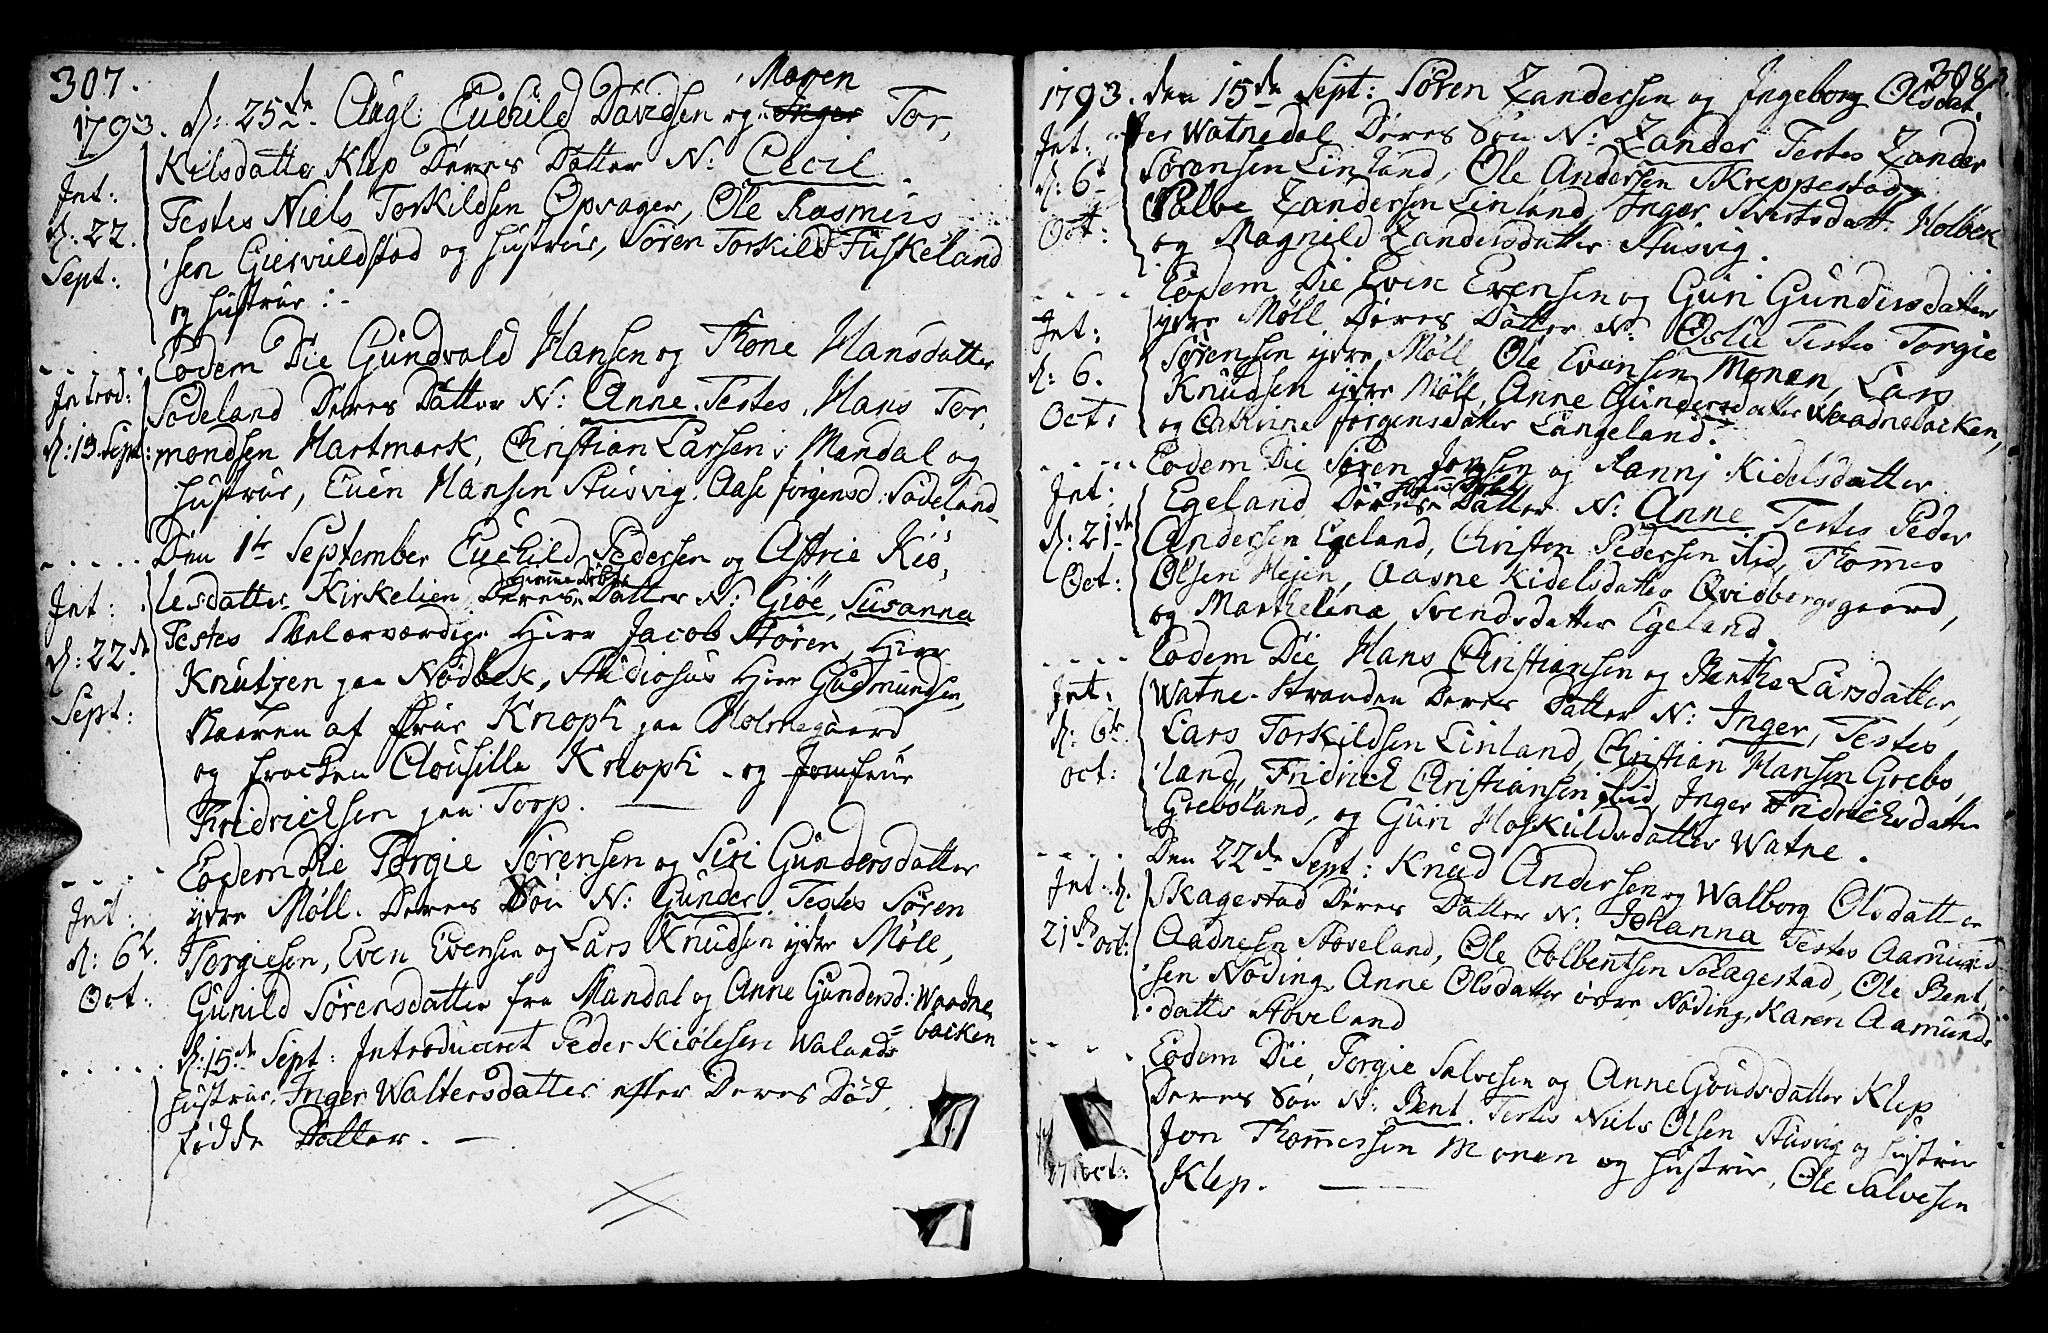 307.
1793. d: 25de Augl: Euchild Davidsen og Maren Inger Tor,
Kilsdatter Klep Deres Datter N: Cecil.
Testes Niels Torkildsen Opsager, Ole Rasmus
sen Giervuldstad og Hustrue, Søren Torkild Fuskeland
og Hustrue :-
Int:
d: 22.
Sept:
Eodem Die Gundvald Hansen og Thone Hansdatter
Sødeland Deres Datter N: Anne. Testes, Hans Tor,
mondsen Hartmark, Christian Larsen i Mandal og
Hustrue, Euen Hansen Stusvig. Aase Jørgensd: Sødeland
Introd:
d: 13 Sept:
Den 1te September Euchild Pedersen og Astrie Kiø,
lesdatter Kirkelien Deres hieme Døbte Datter N: Giøe, Susanna
Testes Velærværdige Herr Jacob Støren, Herr
Knutzen paa Nødbek, Studiosus Herr Gudmundsen,
Baaren af Frue Knoph paa Holmegaard
og Frøcken Clousille Knoph - og Jomfrue
Fridrichsen paa Torp.
Int:
d: 22de
Sept:
Eodem Die Torgie Sørensen og Siri Gundersdatter
ydre Møll. Deres Søn N: Gunder. Testes Søren
Torgiesen, Even Evensen og Lars Knudsen ydre Møll,
Gunild Sørensdatter fra Mandal og Anne Gundersd: Waadne
backen
Int:
d: 6te.
Oct:
d: 15de Sept: Introduceret Peder Kiølesen Walands
Hustrue, Inger Waltersdatter efter Deres Død
fødde Datter. -
308.
1793. den 15de Sept: Søren Zandersen og Ingeborg Olsdat,
ter Watnedal Deres Søn N: Zander Testes Zander
Sørensen Linland, Ole Andersen Skreppestad
Salve Zandersen Linland, Inger Sivertsdatt: Holbek
og Magnild Zandersdatter Stusvig.
Int:
d: 6te
Oct:
Eodem Die Even Evensen og Guri Gundersdatter
ydre Møll Deres Datter N: Oslu Testes Torgie
Sørensen ydre Møll Ole Evensen Monen, Lars
Knudsen ydre Møll, Anne Gundersdatter Waadnebacken,
og Cathrine Jørgensdatter Langeland.
Int:
d: 6.
Oct:
Eodem Die Søren Jonsen og Rannj Kidelsdatter
Egeland Deres hieme Døbte Datter N: Anne Testes Peder
Andersen Egeland, Christen Pedersen ibid, Thommes
Olsen Heien, Aasne Kidelsdatter Qvidbergsgaard,
og Marthelena Svendsdatter Egeland.
Int:
d: 21de
Oct:
Eodem Die, Hans Christiansen og Berthe Larsdatter,
Watne-Stranden Deres Datter N: Inger, Testes
Lars Torkildsen Linland, Christian Hansen Grebs,
land, Fridrich Christiansen ibid, Inger Fridrichsdatter
Grebsland, og Guri Hoskuldsdatter Watne.
Int:
d: 6te
oct:
Den 22de Sept: Knud Andersen og Walborg Olsdatter
Skagestad Deres Datter N: Johanna Testes Aamund
Aadnesen Støveland, Ole Colbentsen Skagestad, Ole Bent,
sen Nøding, Anne Olsdatter øvre Nøding, Karen Aamunds
datter Støveland
Int. d.
21de oct:
Eodem Die, Torgie Salvesen og Anne Goudsdatter Klep
Deres Søn N: Bent. Testes Niels Olsen Stusvig og Hustrue
Jon Thommessen Monen og Hustrue, Ole Salvesen
Klep.
oct: